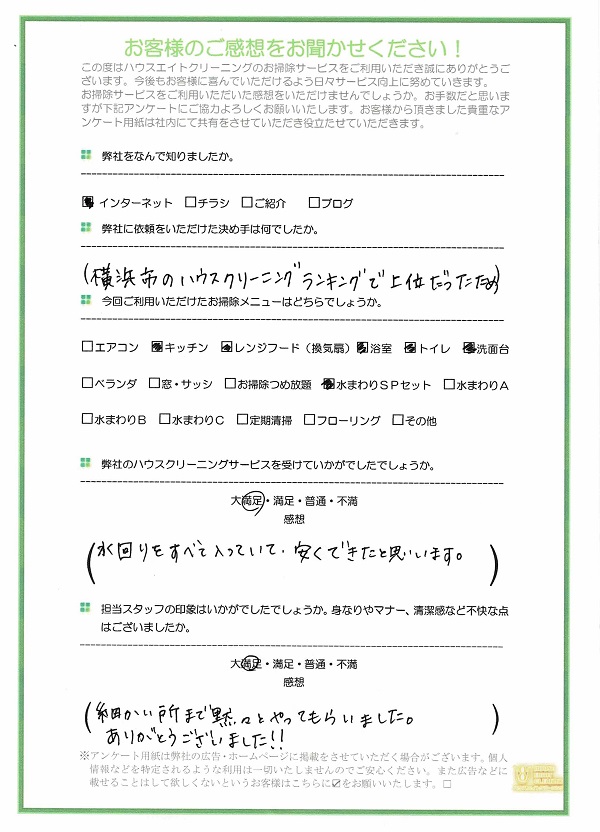 お客様のご感想をお聞かせください！
この度はハウスエイトクリーニングのお掃除サービスをご利用いただき誠にありがとうご
ざいます。今後もお客様に喜んでいただけるよう日々サービス向上に努めていきます。
お掃除サービスをご利用いただいた感想をいただけませんでしょうか。お手数だと思いま
すが下記アンケートにご協力よろしくお願いいたします。お客様から頂きました貴重なア
ンケート用紙は社内にて共有をさせていただき役立たせていただきます。
弊社をなんで知りましたか。
■インターネット □チラシ □ご紹介 □ブログ
弊社に依頼をいただけた決め手は何でしたか。
(横浜市のハウスクリーニングランキングで上位だったため)
今回ご利用いただけたお掃除メニューはどちらでしょうか。
□エアコン ■キッチン ■レンジフード（換気扇） ■浴室 ■トイレ ■洗面台
□ベランダ □窓・サッシ □お掃除つめ放題 ■水まわりSPセット □水まわりA
□水まわりB □水まわりC □定期清掃 □フローリング □その他
弊社のハウスクリーニングサービスを受けていかがでしたでしょうか。
大満足・満足・普通・不満
感想
(水回りをすべて入っていて、安くできたと思います。)
担当スタッフの印象はいかがでしたでしょうか。身なりやマナー、清潔感など不快な点
はございましたか。
大満足・満足・普通・不満
感想
(細かい所まで黙々とやってもらいました。
ありがとうございました!!)
※アンケート用紙は弊社の広告・ホームページに掲載をさせていただく場合がございます。個人
情報などを特定されるような利用は一切いたしませんのでご安心ください。また広告などに
載せることはして欲しくないというお客様はこちらに☑をお願いいたします。□